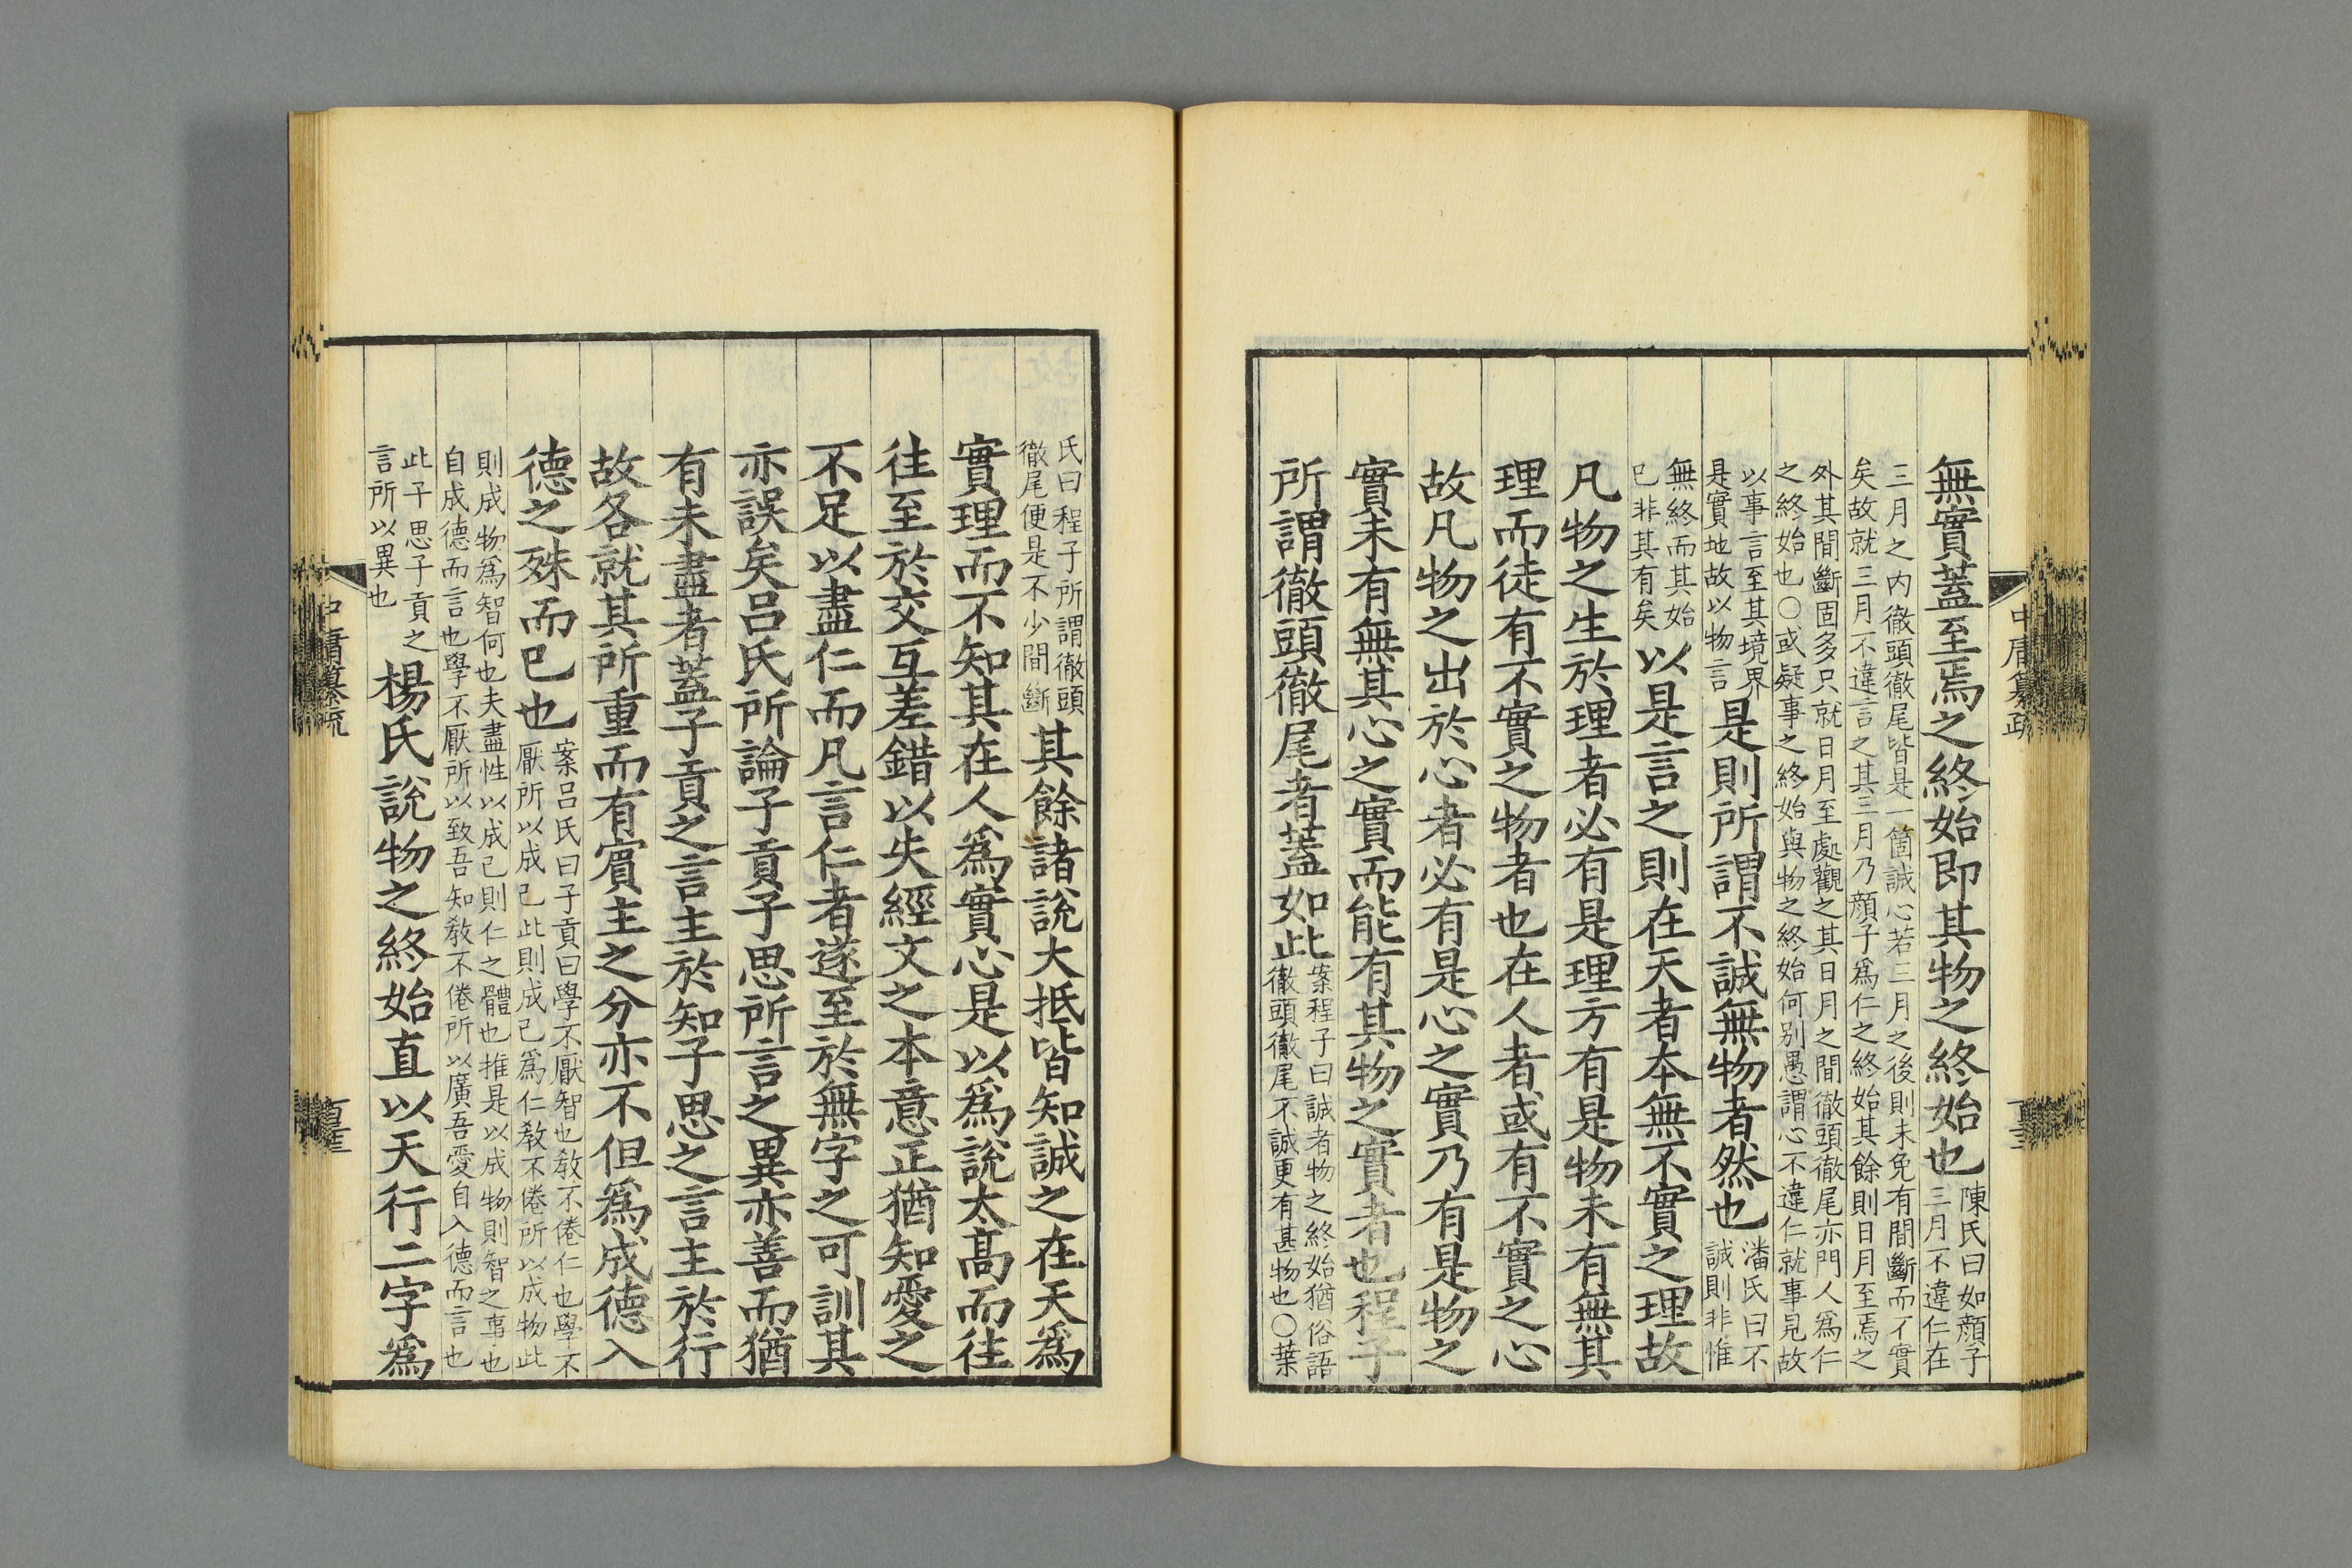 無實蓋至焉之終始即其物之終始也陳氏曰如顔子
三月不違仁在
三月之内徹頭徹尾皆是一箇誠心若三月之後則未免有間斷而不實
矣故就三月不違言之其三月乃顔子爲仁之終始其餘則日月至焉之
外其間斷固多只就日月至處觀之其日月之間徹頭徹尾亦門人爲仁
之終始也○或疑事之終始與物之終始何别愚謂心不違仁就事見故
以事言至其境界
是實地故以物言
是則所謂不誠無物者然也
潘氏曰不
誠則非惟
無終而其始
已非其有矣
以是言之則在天者本無不實之理故
凡物之生於理者必有是理方有是物未有無其
理而徒有不實之物者也在人者或有不實之心
故凡物之出於心者必有是心之實乃有是物之
實未有無其心之實而能有其物之實者也程子
所謂徹頭徹尾者蓋如此
案程子曰誠者物之終始猶俗語
徹頭徹尾不誠更有甚物也○葉
氏曰程子所謂徹頭
徹尾便是不少間斷
其餘諸說大抵皆知誠之在天爲
實理而不知其在人爲實心是以爲說太高而往
往至於交互差錯以失經文之本意正猶知愛之
不足以盡仁而凡言仁者遂至於無字之可訓其
亦誤矣呂氏所論子貢子思所言之異亦善而猶
有未盡者蓋子貢之言主於知子思之言主於行
故各就其所重而有賔主之分亦不但爲成德入
德之殊而已也
案呂氏曰子貢曰學不厭智也敎不倦仁也學不
厭所以成已此則成已爲仁敎不倦所以成物此
則成物爲智何也夫盡性以成已則仁之體也推是以成物則智之事也
自成德而言也學不厭所以致吾知敎不倦所以廣吾愛自入德而言也
此子思子貢之
言所以異也
楊氏說物之終始直以天行二字爲
中庸纂疏
中庸纂疏